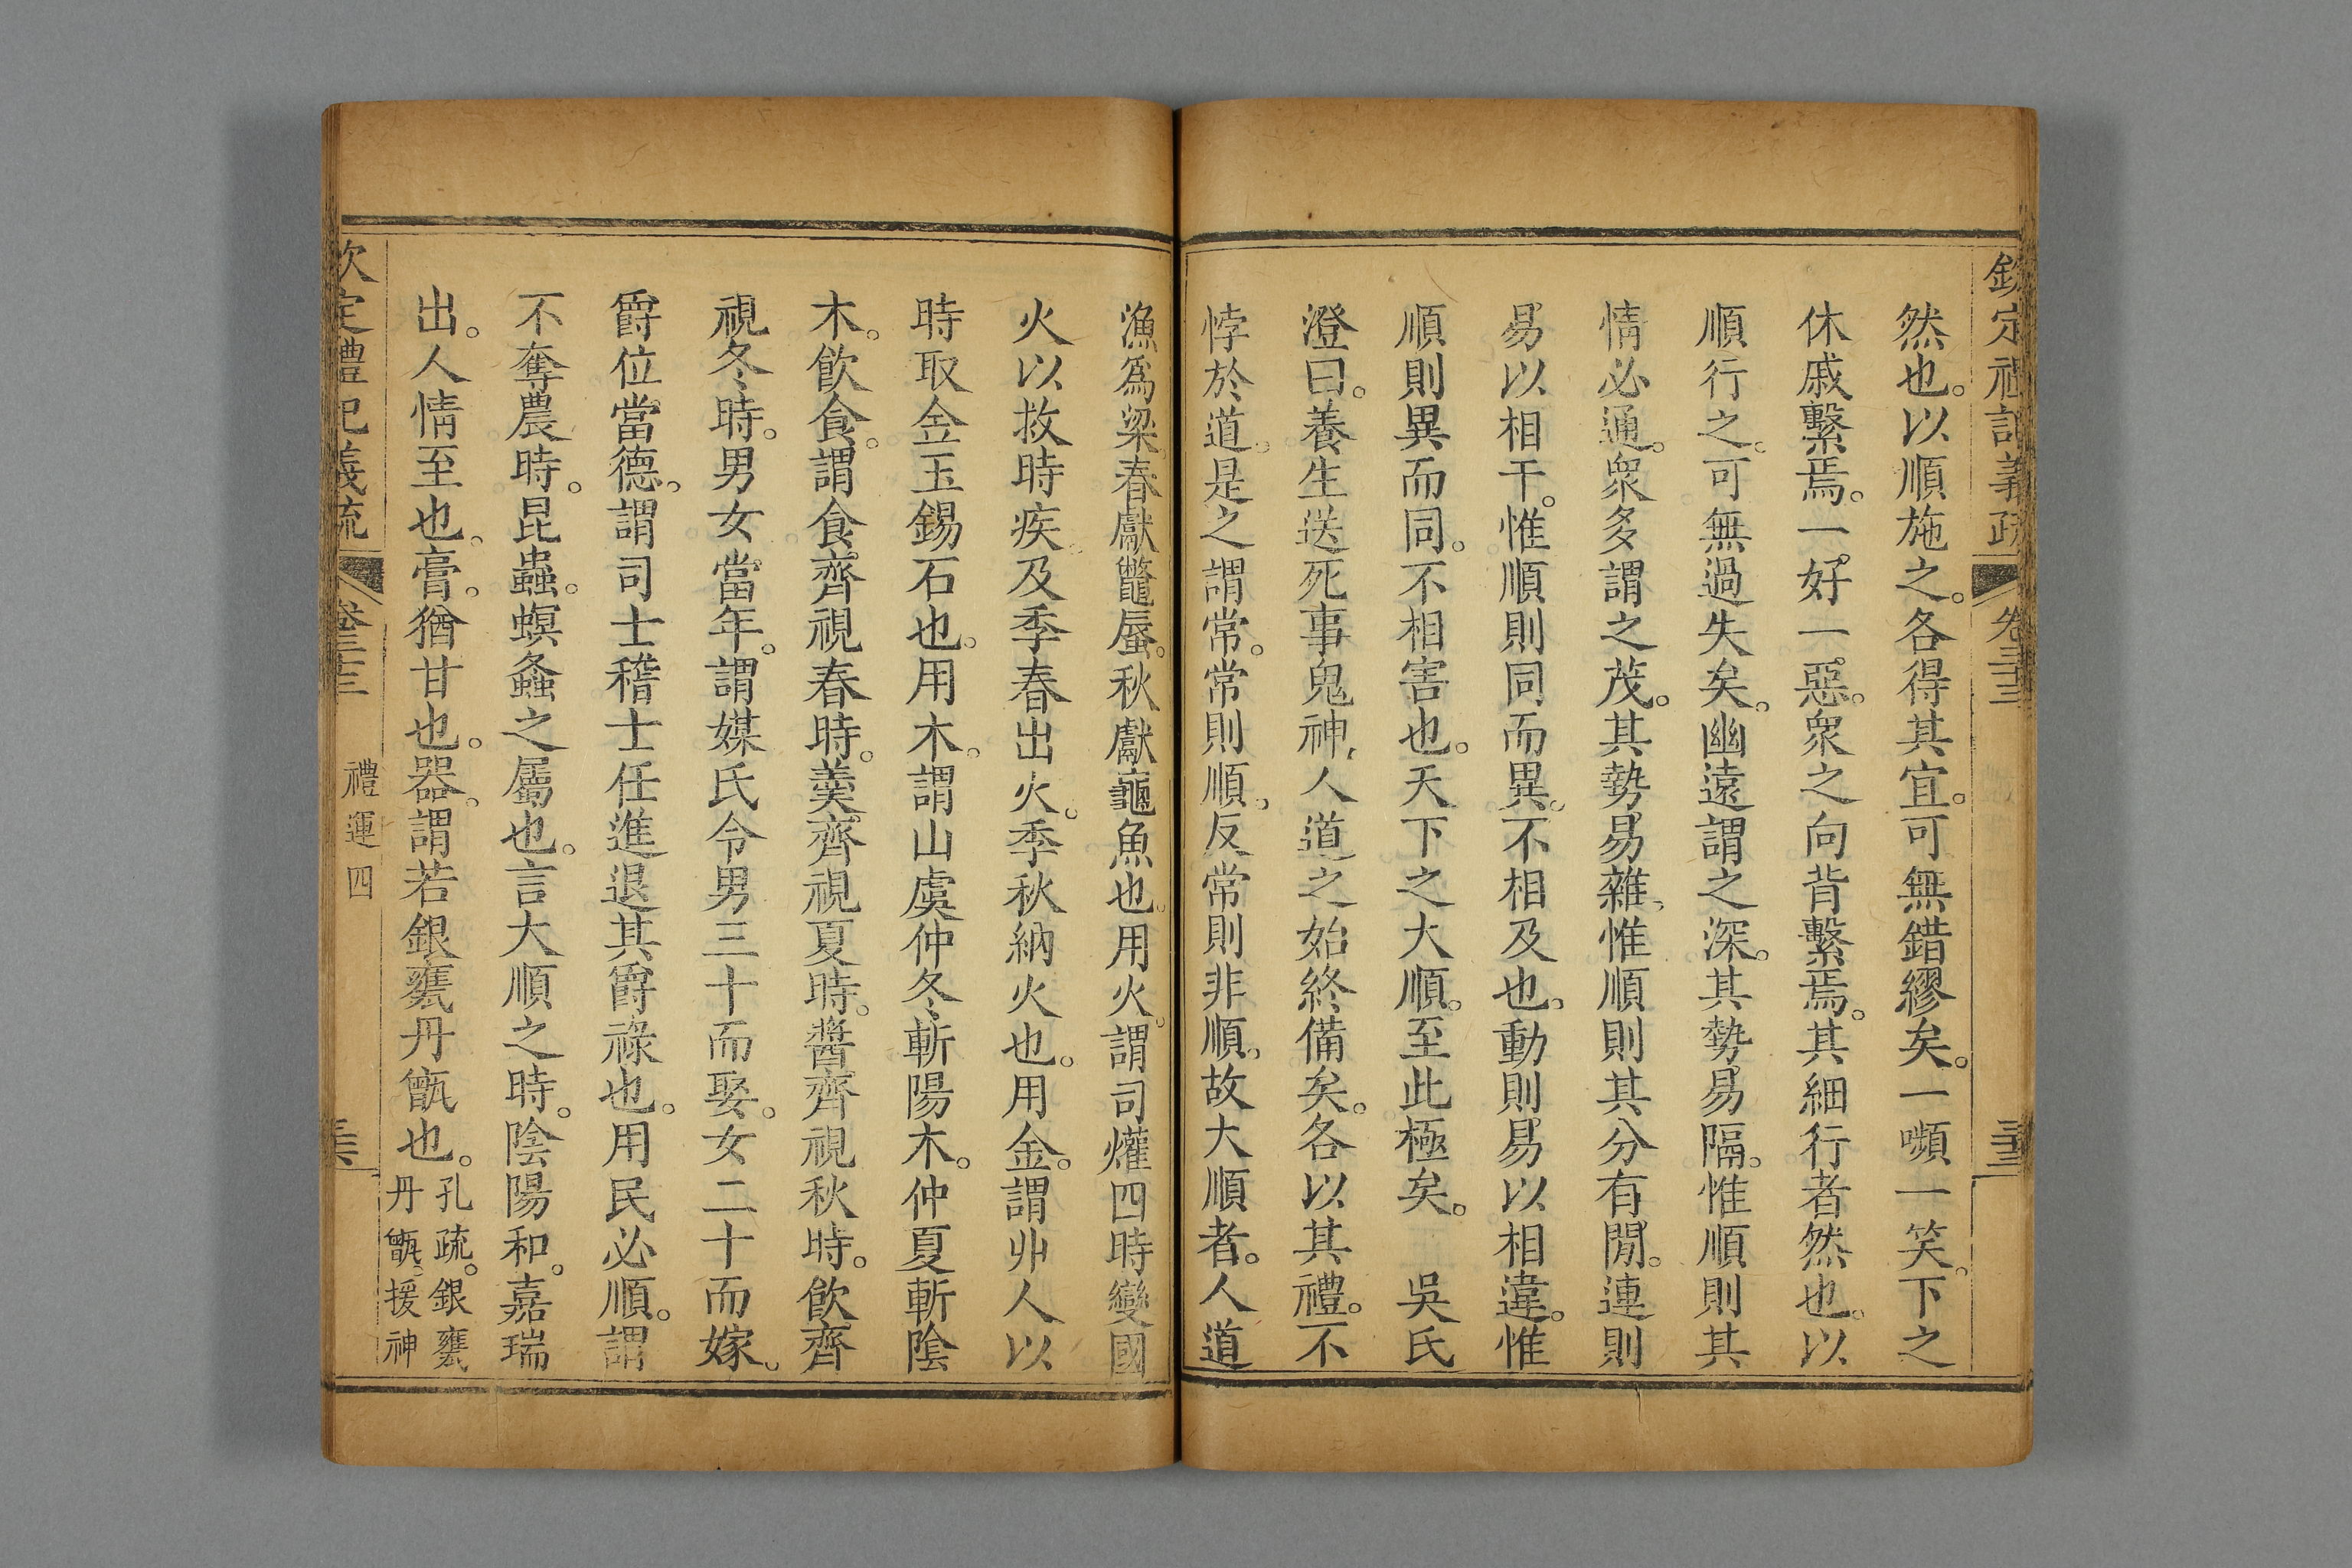 欽定禮記義疏 卷三十三
然也。以順施之。各得其宜。可無錯繆矣。一嚬一笑。下之
休戚繫焉。一好一惡。衆之向背繫焉。其細行者然也。以
順行之。可無過失矣。幽遠謂之深。其勢易隔。惟順則其
情必通。衆多謂之茂。其勢易雜。惟順則其分有閒。連則
易以相干。惟順則同而異。不相及也。動則易以相違。惟
順則異而同。不相害也。天下之大順。至此極矣。 吳氏
澄曰。養生送死事鬼神。人道之始終備矣。各以其禮。不
悖於道。是之謂常。常則順。反常則非順。故大順者。人道
漁爲梁。春獻鼈蜃。秋獻龜魚也。用火。謂司爟四時變國
火以救時疾。及季春出火。季秋納火也。用金。謂丱人以
時取金玉錫石也。用木。謂山虞仲冬斬陽木。仲夏斬陰
木。飲食。謂食齊視春時。羹齊視夏時。醬齊視秋時。飲齊
視冬時。男女當年。謂媒氏令男三十而娶。女二十而嫁。
爵位當德。謂司士稽士任進退其爵祿也。用民必順。謂
不奪農時。昆蟲。螟螽之屬也。言大順之時。陰陽和。嘉瑞
出。人情至也。膏。猶甘也。器。謂若銀甕丹甑也。
孔疏。銀甕
丹甑。援神
欽定禮記義疏 卷三十三 禮運四